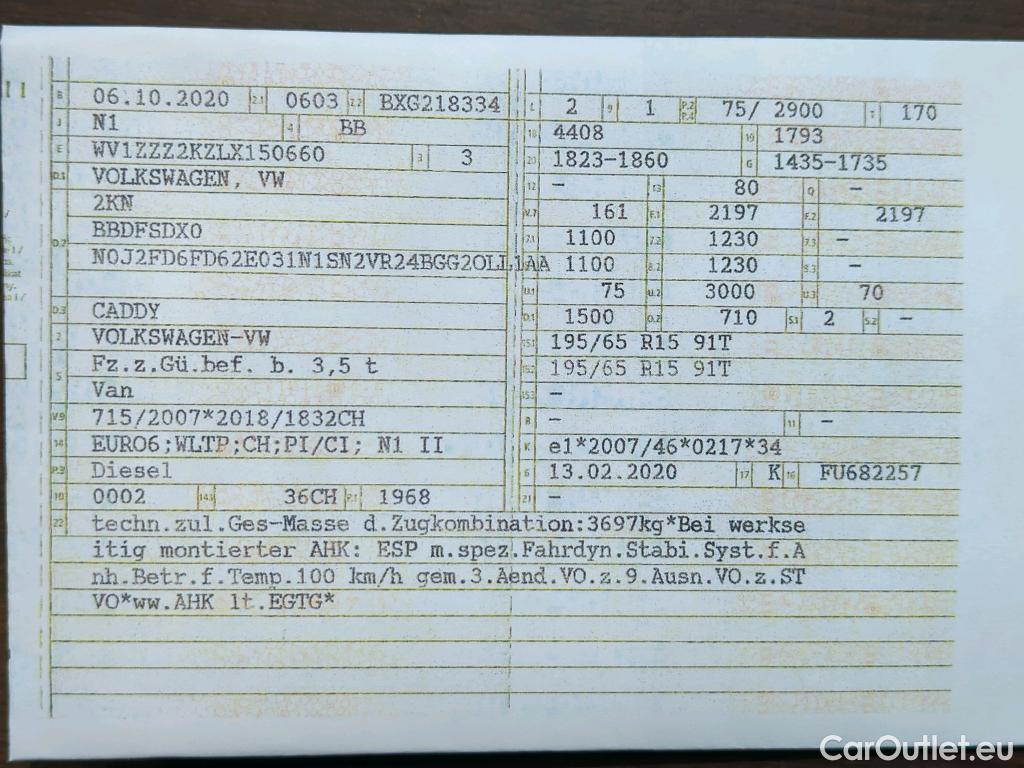 11
B 06.10.2020 2.1 0603 2.2 BXG218334
J N1 4 BB
E WV1ZZZ2KZLX150660 3 3
D.1 VOLKSWAGEN, VW
2KN
D.2 BBDFSDX0
N0J2FD6FD62E031N1SN2VR24BGG2OLL1AA
D.3 CADDY
2 VOLKSWAGEN-VW
5 Fz.z.Gü.bef. b. 3,5 t
Van
V.9 715/2007*2018/1832CH
14 EURO6;WLTP;CH;PI/CI; N1 II
P.3 Diesel
10 0002 14.1 36CH P.1 1968
L 2 9 1 P.2 P.4 75/ 2900 T 170
18 4408 19 1793
20 1823-1860 G 1435-1735
12 – 13 80 Q –
V.7 161 F.1 2197 F.2 2197
7.1 1100 7.2 1230 7.3 –
1100 8.2 1230 8.3 –
U.1 75 U.2 3000 U.3 70
O.1 1500 O.2 710 S.1 2 S.2 –
15.1 195/65 R15 91T
15.2 195/65 R15 91T
15.3 –
R – 11 –
K e1*2007/46*0217*34
6 13.02.2020 17 K 16 FU682257
21 –
22 techn.zul.Ges-Masse d.Zugkombination:3697kg*Bei werkse
itig montierter AHK: ESP m.spez.Fahrdyn.Stabi.Syst.f.A
nh.Betr.f.Temp.100 km/h gem.3.Aend.VO.z.9.Ausn.VO.z.ST
VO*ww.AHK lt.EGTG*
CarOutlet.eu